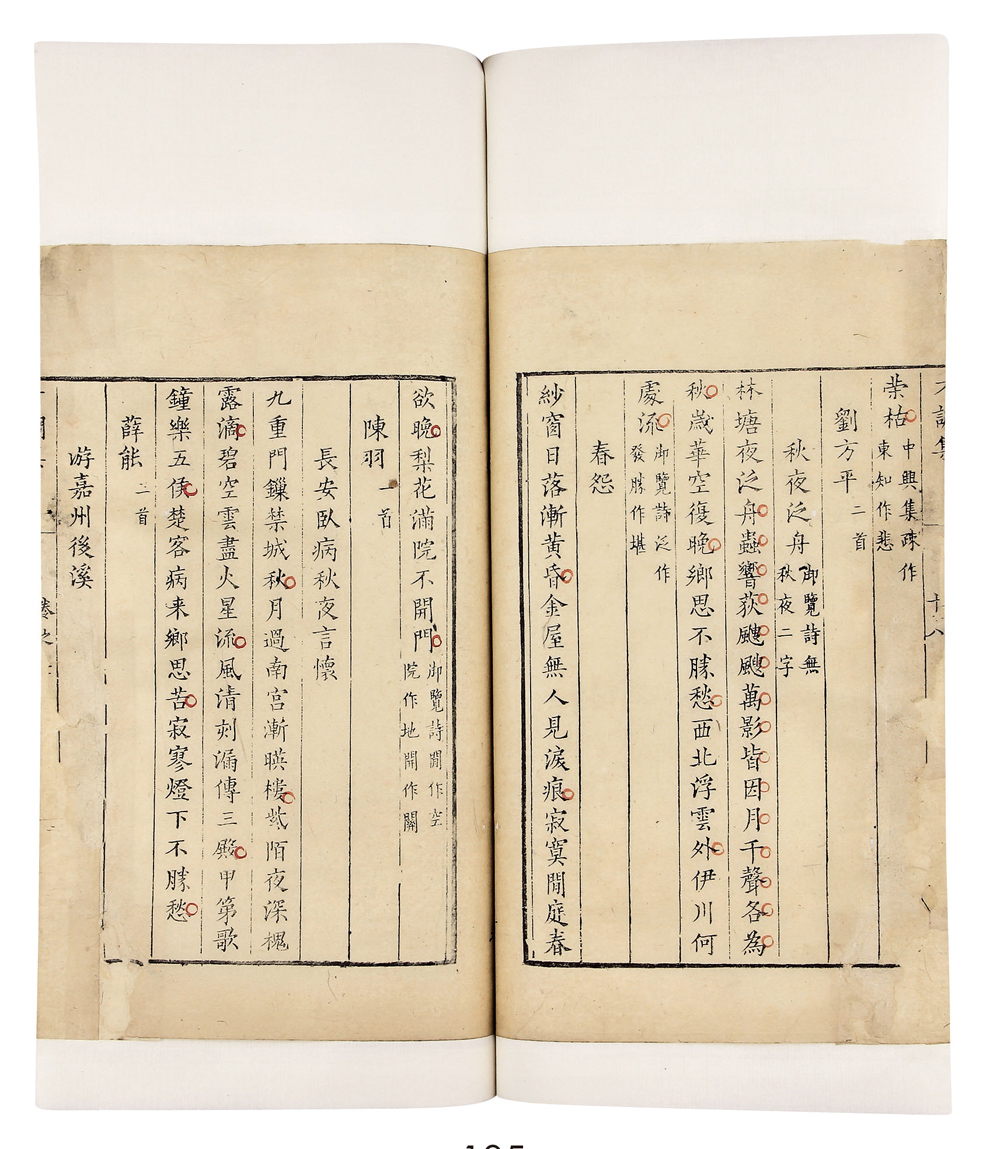 榮枯 中興集疎作
東知作悲
劉方平 二首
秋夜泛舟 御覽詩無
秋夜二字
林塘夜泛舟蟲響荻颼颼萬影皆因月千聲各為
秋歲華空復晚鄉思不勝愁西北浮雲外伊川何
處流 御覽詩泛作
發勝作堪
春怨
紗窗日落漸黃昏金屋無人見淚痕寂寞閒庭春
欲晚梨花滿院不開門 御覽詩閒作空
院作地開作關
陳羽 一首
長安臥病秋夜言懷
九重門鏁禁城秋月過南宮漸暎樓紫陌夜深槐
露滴碧空雲盡火星流風清刻漏傳三殿甲第歌
鐘樂五侯楚客病来鄉思苦寂寥燈下不勝愁
薛能 二首
游嘉州後溪